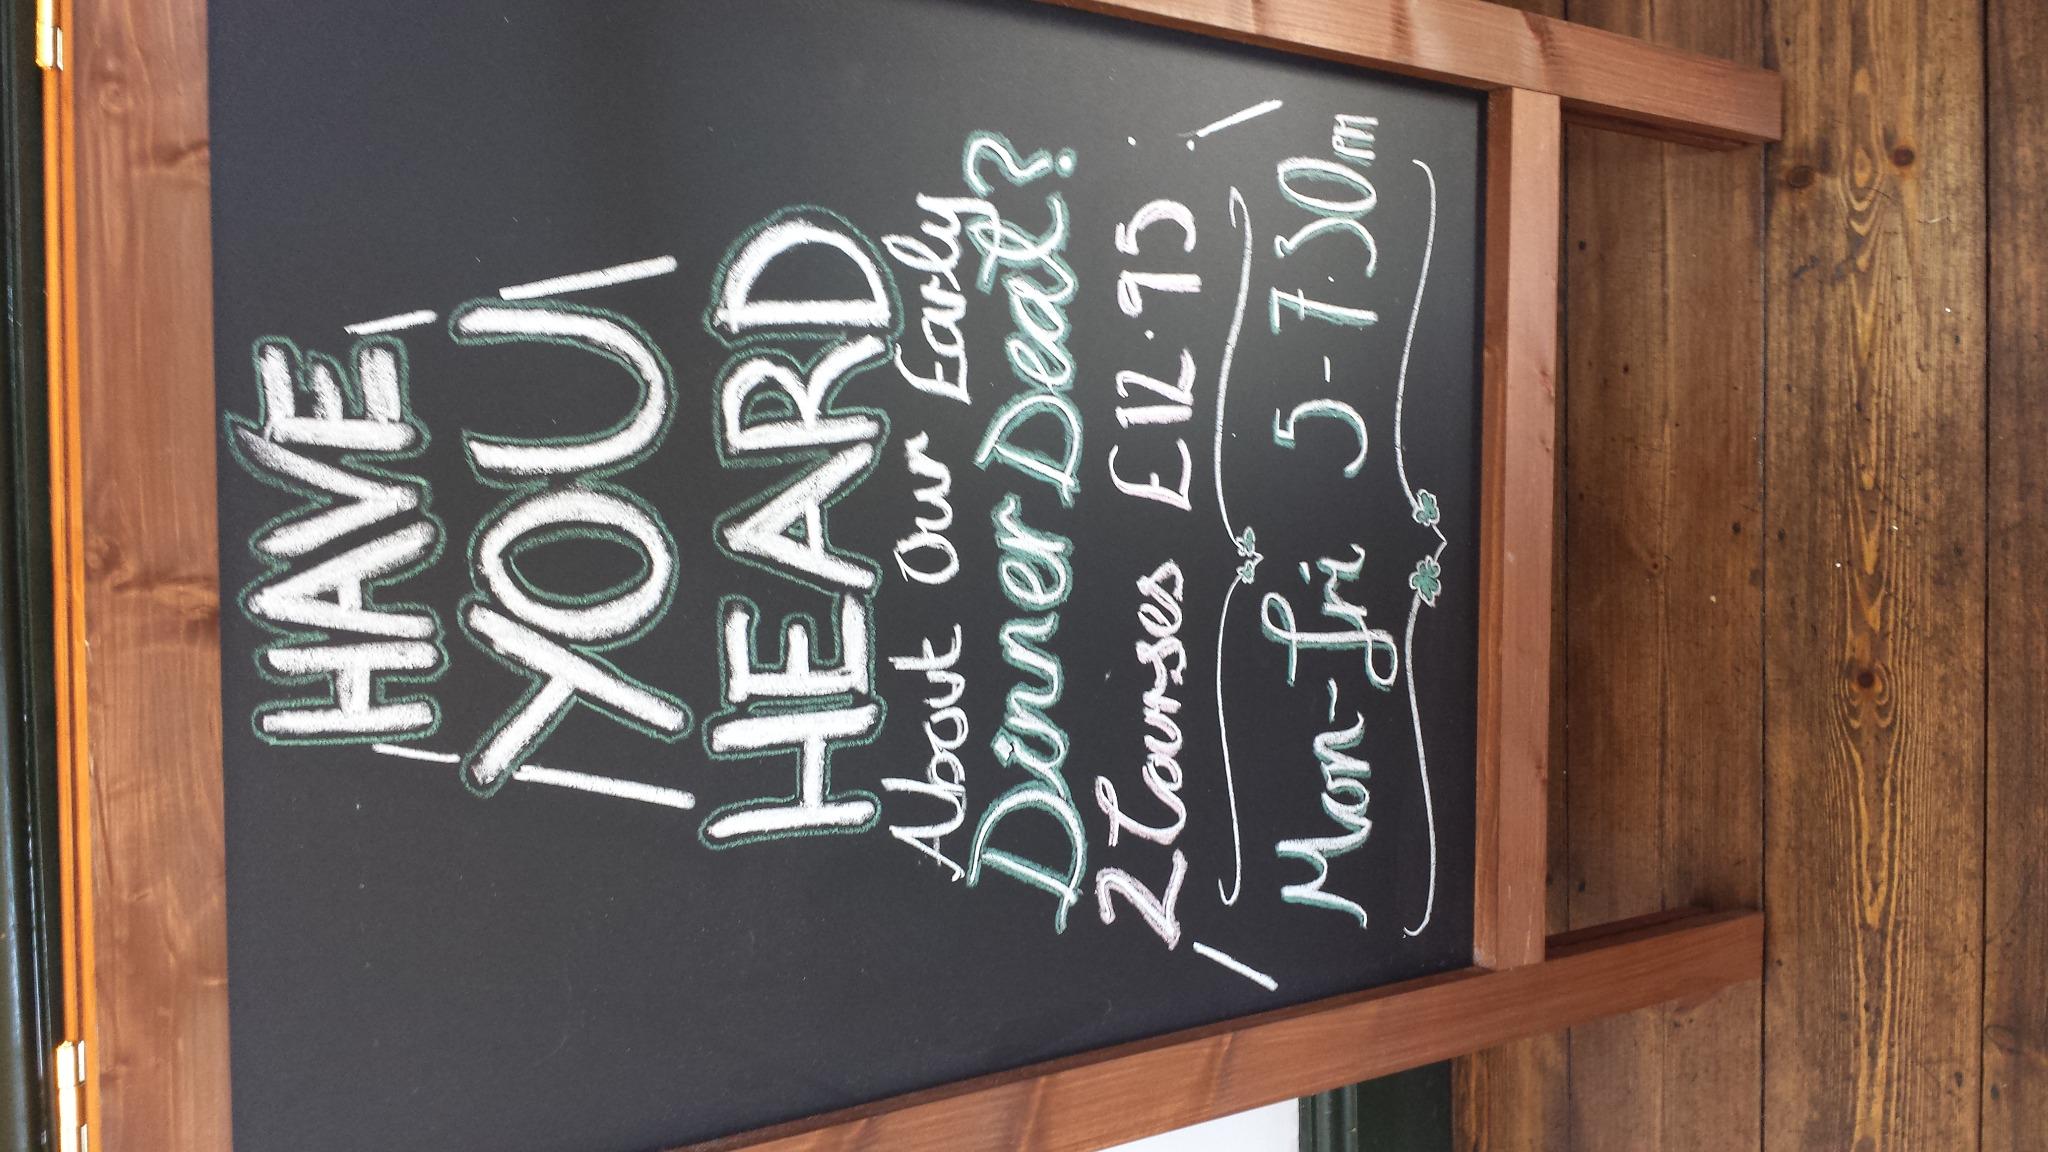 HAVE
YOU
HEARD
About Our Early
Dinner Deal?
2 Courses £12.95
Mon-Fri 5-7.30pm